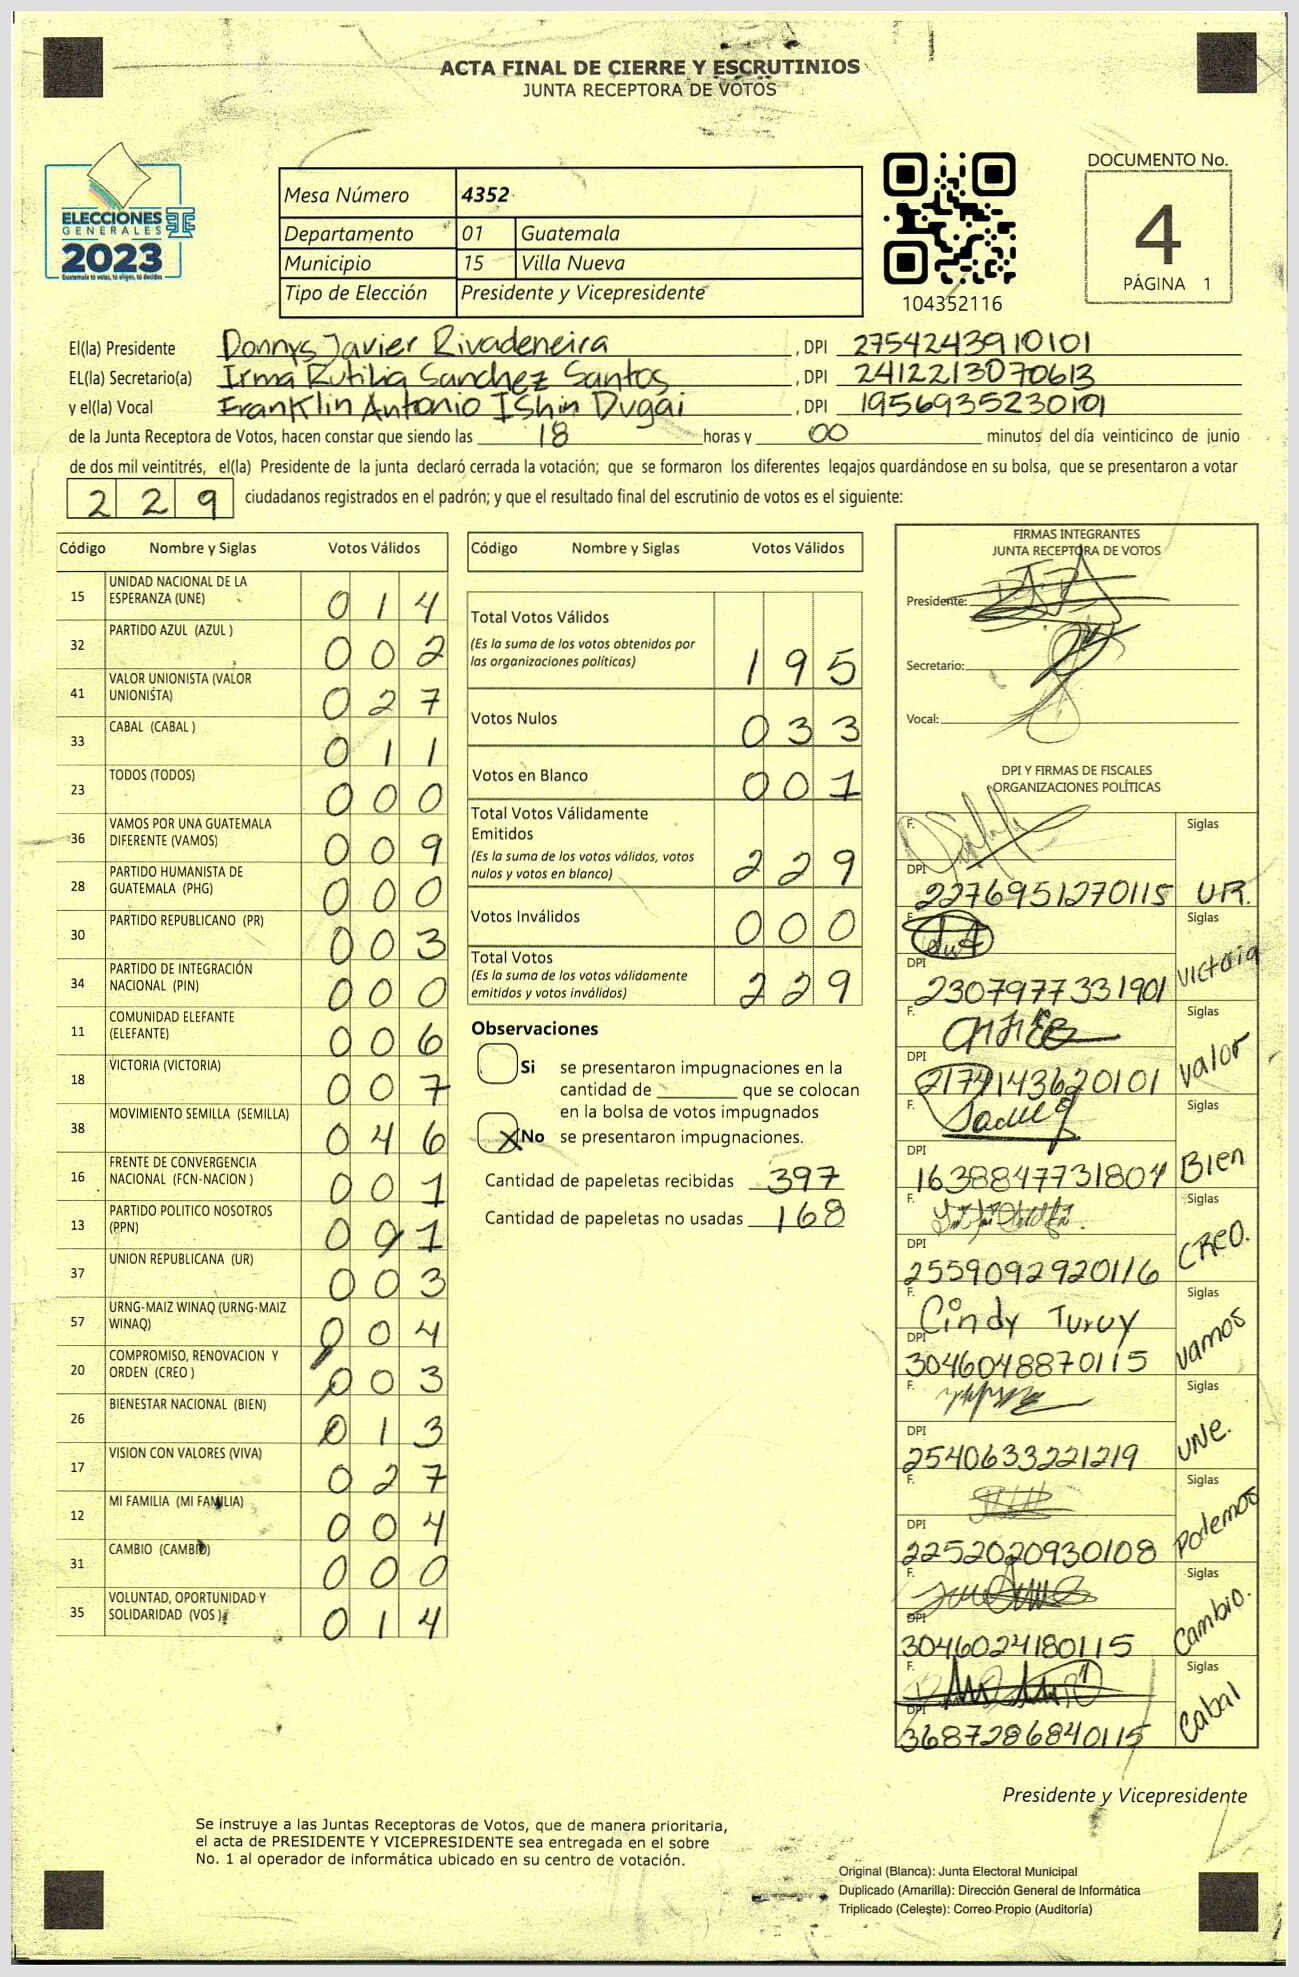 ACTA FINAL DE CIERRE Y ESCRUTINIOS
JUNTA RECEPTORA DE VOTOS
ELECCIONES
GENERALES
2023
Guatemala tú votas, tú eliges, tú decides
Mesa Número 4352
Departamento 01 Guatemala
Municipio 15 Villa Nueva
Tipo de Elección Presidente y Vicepresidente
104352116
DOCUMENTO No.
4
PÁGINA 1
El(la) Presidente Donnys Javier Rivadeneira , DPI 2754243910101
EL(la) Secretario(a) Irma Rutilia Sanchez Santos , DPI 2412213070613
y el(la) Vocal Franklin Antonio IShin Dugai , DPI 1956935230101
de la Junta Receptora de Votos, hacen constar que siendo las 18 horas y 00 minutos del día veinticinco de junio
de dos mil veintitrés, el(la) Presidente de la junta declaró cerrada la votación; que se formaron los diferentes legajos guardándose en su bolsa, que se presentaron a votar
229 ciudadanos registrados en el padrón; y que el resultado final del escrutinio de votos es el siguiente:
Código Nombre y Siglas Votos Válidos
15 UNIDAD NACIONAL DE LA
ESPERANZA (UNE) 014
32 PARTIDO AZUL (AZUL ) 002
41 VALOR UNIONISTA (VALOR
UNIONISTA) 027
33 CABAL (CABAL ) 011
23 TODOS (TODOS) 000
36 VAMOS POR UNA GUATEMALA
DIFERENTE (VAMOS) 009
28 PARTIDO HUMANISTA DE
GUATEMALA (PHG) 000
30 PARTIDO REPUBLICANO (PR) 003
34 PARTIDO DE INTEGRACIÓN
NACIONAL (PIN) 000
11 COMUNIDAD ELEFANTE
(ELEFANTE) 006
18 VICTORIA (VICTORIA) 007
38 MOVIMIENTO SEMILLA (SEMILLA) 046
16 FRENTE DE CONVERGENCIA
NACIONAL (FCN-NACION ) 001
13 PARTIDO POLITICO NOSOTROS
(PPN) 001
37 UNION REPUBLICANA (UR) 003
57 URNG-MAIZ WINAQ (URNG-MAIZ
WINAQ) 004
20 COMPROMISO, RENOVACION Y
ORDEN (CREO ) 003
26 BIENESTAR NACIONAL (BIEN) 013
17 VISION CON VALORES (VIVA) 027
12 MI FAMILIA (MI FAMILIA) 004
31 CAMBIO (CAMBIO) 000
35 VOLUNTAD, OPORTUNIDAD Y
SOLIDARIDAD (VOS ) 014
Código Nombre y Siglas Votos Válidos
Total Votos Válidos
(Es la suma de los votos obtenidos por
las organizaciones políticas) 195
Votos Nulos 033
Votos en Blanco 001
Total Votos Válidamente
Emitidos
(Es la suma de los votos válidos, votos
nulos y votos en blanco) 229
Votos Inválidos 000
Total Votos
(Es la suma de los votos válidamente
emitidos y votos inválidos) 229
Observaciones
Si se presentaron impugnaciones en la
cantidad de ________ que se colocan
en la bolsa de votos impugnados
X No se presentaron impugnaciones.
Cantidad de papeletas recibidas 397
Cantidad de papeletas no usadas 168
FIRMAS INTEGRANTES
JUNTA RECEPTORA DE VOTOS
Presidente:
Secretario:
Vocal:
DPI Y FIRMAS DE FISCALES
ORGANIZACIONES POLÍTICAS
F. Siglas
DPI 2276951270115 UR.
F. Siglas
DPI 2307977331901 victoria
F. Siglas
DPI 2174143620101 valor
F. Siglas
DPI 1638847731804 Bien
F. Siglas
DPI 2559092920116 CREO.
F. Cindy Turuy Siglas
DPI 3046048870115 vamos
F. Siglas
DPI 2540633221219 UNe.
F. Siglas
DPI 2252020930108 Podemos
F. Siglas
DPI 3046024180115 Cambio.
F. Siglas
DPI 3687286840115 Cabal
Presidente y Vicepresidente
Se instruye a las Juntas Receptoras de Votos, que de manera prioritaria,
el acta de PRESIDENTE Y VICEPRESIDENTE sea entregada en el sobre
No. 1 al operador de informática ubicado en su centro de votación.
Original (Blanca): Junta Electoral Municipal
Duplicado (Amarilla): Dirección General de Informática
Triplicado (Celeste): Correo Propio (Auditoría)